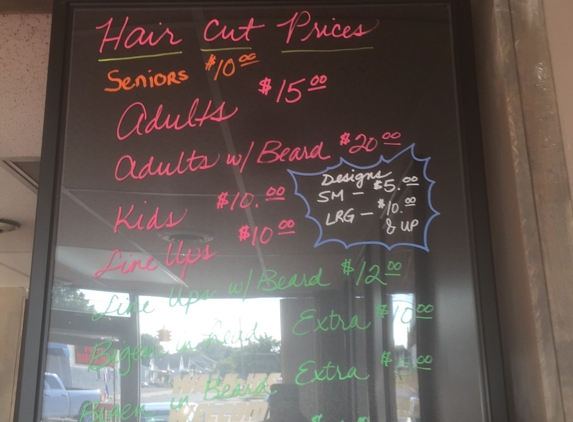 Hair Cut Prices
Seniors $10.00
Adults $15.00
Adults w/ Beard $20.00
Kids $10.00
Line Ups $10.00
Designs
SM - $5.00
LRG - $10.00
& UP
Line Ups w/ Beard $12.00
Bigen in Head Extra $10.00
Bigen in Beard Extra